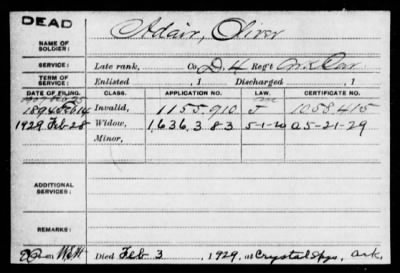 DEAD
Adair, Oliver
NAME OF SOLDIER:
SERVICE: Late rank, Co. D. 4 Reg't Ark. Cav.
TERM OF SERVICE: Enlisted , 1 Discharged , 1
DATE OF FILING. CLASS. APPLICATION NO. LAW. CERTIFICATE NO.
Invalid, 1155.910 J 1058.415
1929 Feb-28 Widow, 1,636,383 5-1-20 A5-21-29
Minor,
ADDITIONAL SERVICES:
REMARKS:
Died Feb 3 , 1929, at Crystal Spgs, Ark.